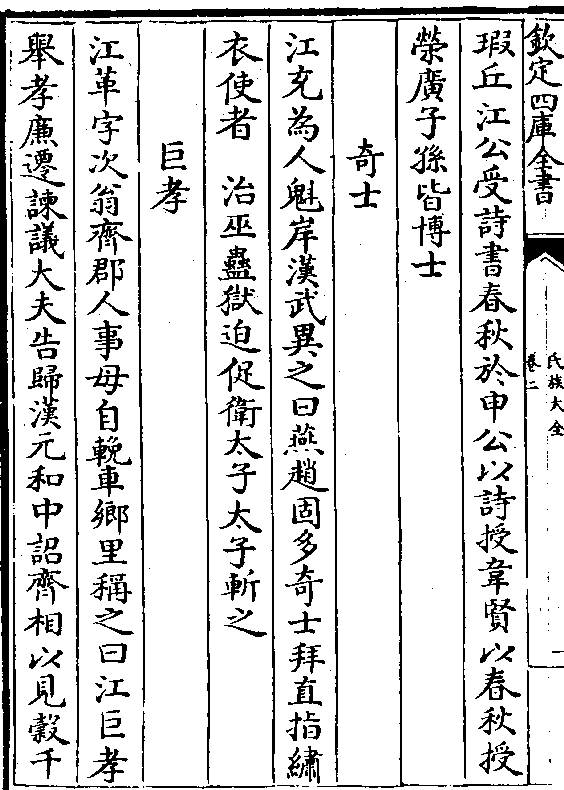 欽定四庫全書
氏族大全
卷二
一
瑕丘江公受詩書春秋於申公以詩授韋賢以春秋授
榮廣子孫皆博士
奇士
江充為人魁岸漢武異之曰燕趙固多奇士拜直指繡
衣使者 治巫蠱獄迫促衛太子太子斬之
巨孝
江革字次翁齊郡人事母自輓車鄉里稱之曰江巨孝
舉孝廉遷諫議大夫告歸漢元和中詔齊相以見穀千